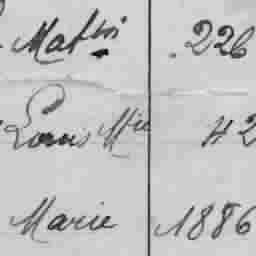 Mathis 226
Louis Mie 42
Marie 1886